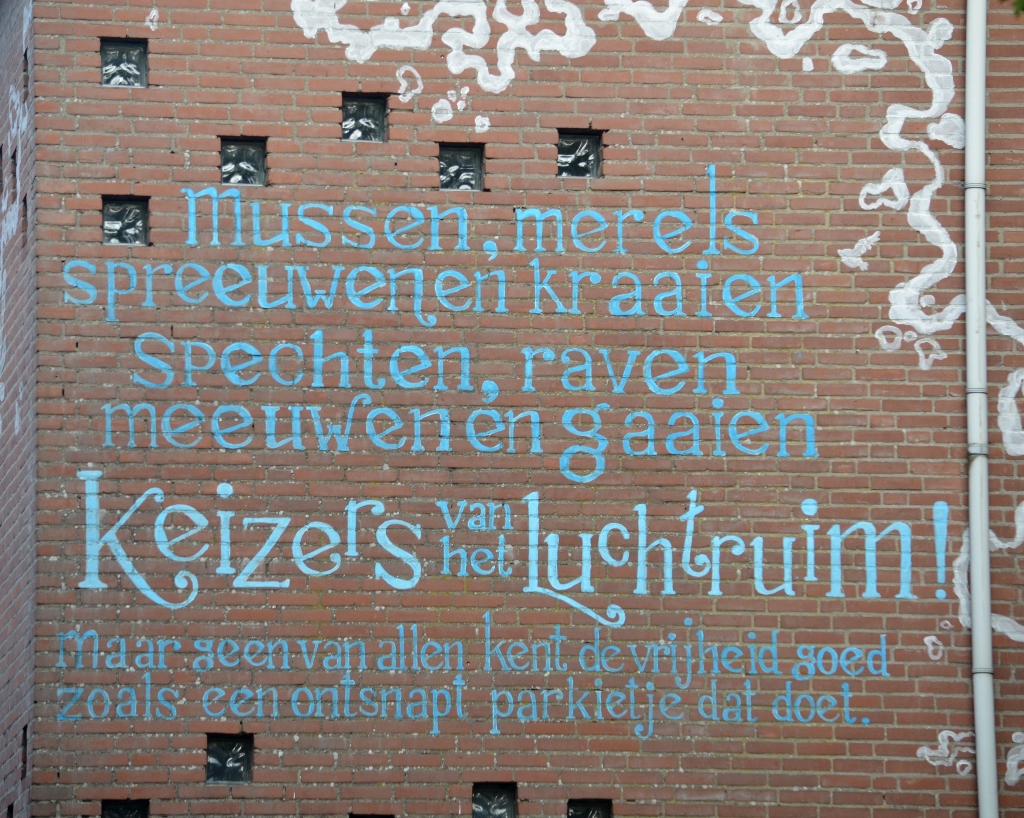 mussen, merels
spreeuwen en kraaien
Spechten, raven
meeuwen en gaaien
Keizers van het Luchtruim!
maar geen van allen kent de vrijheid goed
zoals een ontsnapt parkietje dat doet.